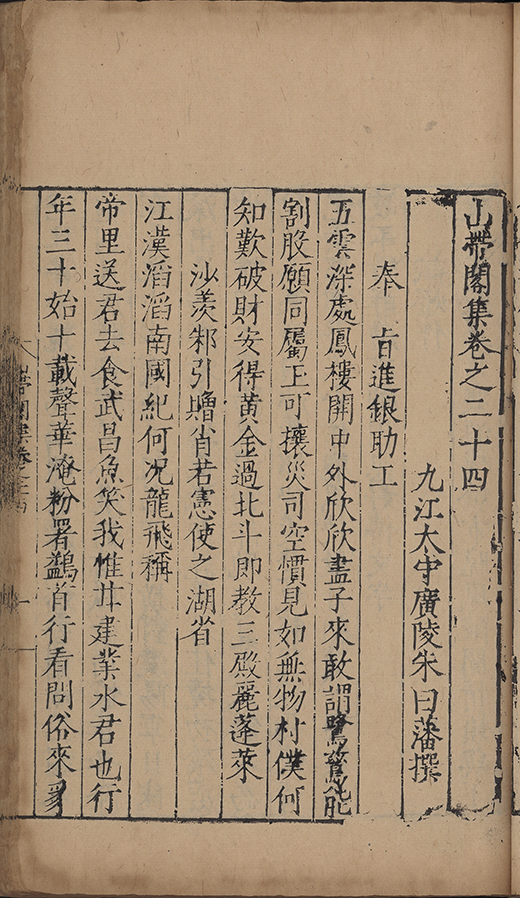 山帶閣集卷之二十四
九江太守廣陵朱曰藩撰
奉　旨進銀助工
五雲深處鳳樓開中外欣欣盡子來敢謂鷺鶿能
割股願同屬玉可攘災司空慣見如無物村僕何
知歎破財安得黃金過北斗即教三殿麗蓬萊
沙羨邾引贈肖若憲使之湖省
江漢滔滔南國紀何況龍飛稱
帝里送君去食武昌魚笑我惟廿建業水君也行
年三十始十載聲華淹粉署鷁首行看問俗來
帶閣集卷之二十四
一